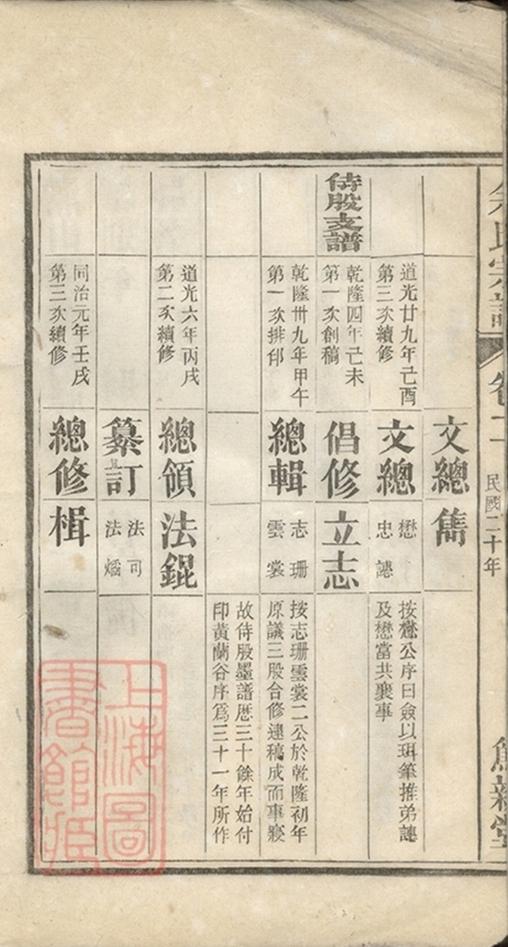 氏宗譜
卷二
民國二十年
新堂
文總
雋
道光廿九年己酉
第三次續修
文總
懋
忠譓
按懋公序曰僉以珥筆推弟譓
及懋當共襄事
侍股支譜
乾隆四年己未
第一次創稿
倡修
立志
乾隆卅九年甲午
第一次排印
總輯
志珊
雲裳
按志珊雲裳二公於乾隆初年
原議三股合修逮稿成而事寢
故侍股墨譜歷三十餘年始付
印黃蘭谷序爲三十一年所作
道光六年丙戌
第二次續修
總領
法錕
纂訂
法可
法
同治元年壬戌
第三次續修
總修
楫
上海圖
書館藏